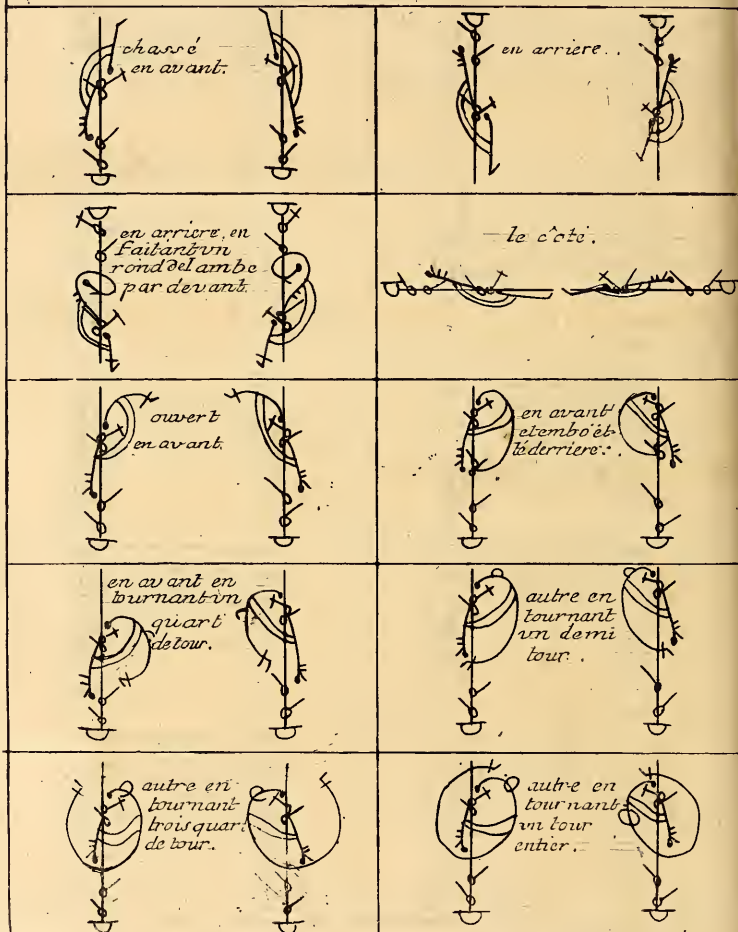 chassé
en avant.
en arriere.
en arriere, en
faisant un
rond de Jambe
par devant.
le côté.
ouvert
en avant.
en avant
et emboët
té derriere.
en avant en
tournant un
quart
de tour.
autre en
tournant
un demi
tour.
autre en
tournant
trois quart
de tour.
autre en
tournant
un tour
entier.